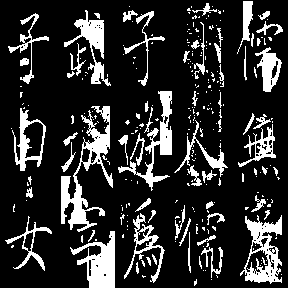 儒無為
小人儒
子遊為
武城宰
子曰女